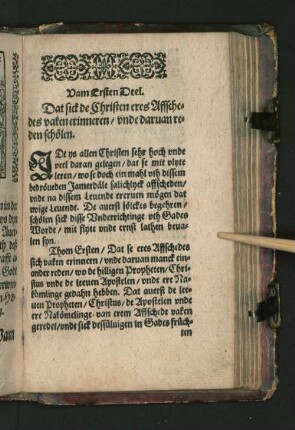 Vam Ersten Deel.
Dat sick de Christen eres Affsche-
des vaken erinneren / vnde daruan re-
den schölen.
IDt ys allen Christen sehr hoch vnde
veel daran gelegen / dat se mit vlyte
leren / wo se doch ein mahl vth dissem
bedröueden Jamerdale salichlyck affscheden /
vnde na dissem Leuende ereruen mögen dat
ewige Leuendt. De auerst sölckes begehren /
schölen sick disse Vnderrichtinge vth Gades
Worde / mit flyte vnde ernst lathen beua-
len syn.
Thom Ersten / Dat se eres Affschedes
sick vaken erinnern / vnde daruan manck ein-
ander reden / wo de hilligen Propheten / Chri-
stus vnde de leeuen Apostelen / vnde ere Na-
kömlinge gedahn hebben. Dat auerst de lee-
uen Propheten / Christus / de Apostelen vnde
ere Nakömelinge van erem Affschede vaken
geredet / vnde sick dessüluigen in Gades früch-
ten